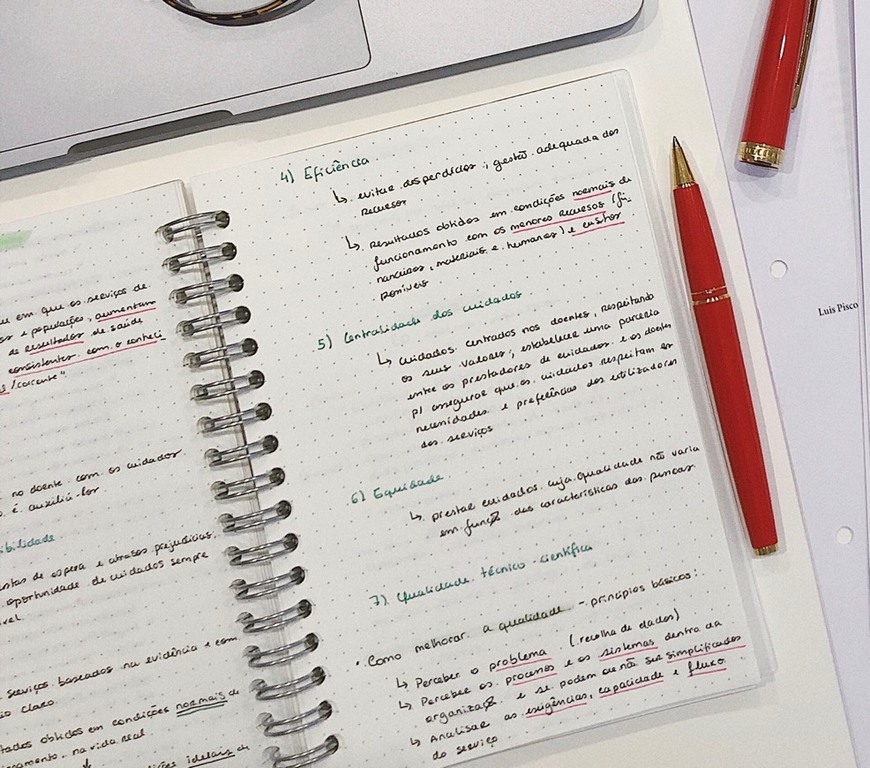 u em que os serviços de
s e populações, aumentam
de resultados de saúde
consistentes com o conheci-
/corrente"
no doente com os cuidados
é auxiliá-los
ibilidade
stas de espera e atrasos prejudiciais.
oportunidade de cuidados sempre
vel.
serviços baseados na evidência e com
io claro.
tados obtidos em condições normais de
onamento, na vida real
ições ideais de
4) Eficiência
↳ evitar desperdícios; gestão adequada dos
recursos
↳ Resultados obtidos em condições normais de
funcionamento com os menores recursos (fi-
nanceiros, materiais e humanos) e custos
possíveis
5) Centralidade dos cuidados
↳ cuidados centrados nos doentes, respeitando
os seus valores; estabelece uma parceria
entre os prestadores de cuidados e os doentes
p/ assegurar que os cuidados respeitam as
necessidades e preferências dos utilizadores
dos serviços
6) Equidade
↳ prestar cuidados cuja qualidade não varia
em função das características das pessoas
7) Qualidade técnico-científica
• Como melhorar a qualidade - princípios básicos:
↳ Perceber o problema (recolha de dados)
↳ Perceber os processos e os sistemas dentro da
organização e se podem ou não ser simplificados
↳ Analisar as exigências, capacidade e fluxo
do serviço
Luis Pisco